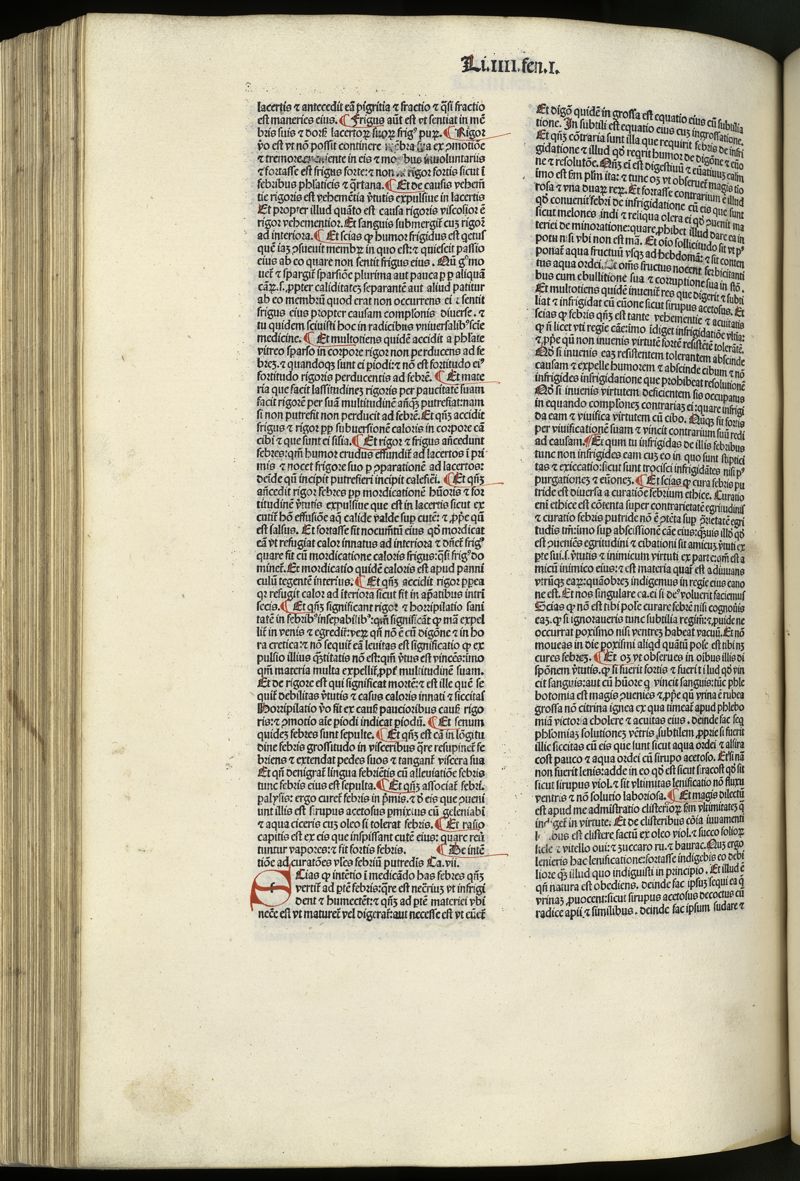 Li.IIII.fen.I.
lacertis ⁊ antecedit eā pigritia ⁊ fractio ⁊ q̄si fractio
est maneries eius. ¶ Frigus aūt est vt sentiat in mē
bris suis ⁊ dorsi lacertoꝝ suoꝝ frigꝰ puꝝ. ¶ Rigor
ṽo est vt nō possit continere
⁊ tremore in eis ⁊ inuoluntariis
⁊ fortasse est frigus forte: ⁊ non rigor fortis sicut ī
febribus phlaticis ⁊ q̄rtana. ¶ Et de causis vehem̄
tie rigoris est vehemētia ṽtutis expulsiue in lacertis
Et propter illud quāto est causa rigoris viscosior ē
rigor vehementior. Et sanguis submergit̄ cuꝫ rigor
ad interiora. ¶ Et scias ꝙ humor frigidus est qetus
que iaꝫ ꝯsueuit membꝝ in quo est: ⁊ quiescit passio
eius ab eo quare non sentit frigus eius.
uet̄ ⁊ spargit̄ sparsiōe plurima aut pauca ꝓp aliquā
cāꝝ. s. ꝓpter caliditateꝫ separantē aut aliud patitur
ab eo membrū quod erat non occurrens ei ⁊ sentit
frigus eius propter causam complōnis diuerse. ⁊
tu quidem sciuisti hoc in radicibus vniuersalibꝰ scie
medicine. ¶ Et multotiens quidē accidit a phlate
vitreo sparso in corpore rigor non perducens ad fe
breꝫ. ⁊ quandoqꝫ sunt ei piodi: ⁊ nō est fortitudo eiꝰ
fortitudo rigoris perducentis ad febrē. ¶ Et mate
ria que facit lassitudineꝫ rigoris per paucitatē suam
facit rigorē per suā multitudinē añq̄ꝫ putrefiat: nam
si non putrefit non perducit ad febrē. Et qñꝫ accidit
frigus ⁊ rigor ꝓp subuersionē caloris in corpore cā
cibi ⁊ que sunt ei silia. ¶ Et rigor ⁊ frigus añcedunt
febres: qm̄ humor crudus effundit̄ ad lacertos ī pri
mis ⁊ nocet frigore suo ꝓ ꝯparationē ad lacertos:
deīde qn̄ incipit putrefieri incipit calefieri. ¶ Et qñꝫ
añcedit rigor febres ꝓp mordicationē hūoris ⁊ for
titudinē ṽtutis expulsiue que est in lacertis sicut ex
cutit̄ hō effusiōe aq̄ calide valde suꝑ cutē: ⁊ ꝓp̄e qū
est salsus. Et fortasse fit nocum̄tū eius qd̄ mordicat
eā vt refugiat calor innatus ad interiora ⁊ dn̄et̄ frigꝰ
quare fit cū mordicatione caloris frigus: q̄si frigꝰ do
minet̄. Et mordicatio quidē caloris est apud panni
culū tegentē interius. ¶ Et qñꝫ accidit rigor ꝓpea
qꝛ refugit calor ad īteriora sicut fit in apatibus intrī
secis. ¶ Et qñꝫ significant rigor ⁊ horripilatio sani
tatē in febribꝰ inseꝑabilibꝰ: qm̄ significāt ꝙ mā expel
lit̄ in venis ⁊ egredit̄: veꝝ qn̄ nō ē cū digōne ⁊ in ho
ra cretica: ⁊ nō sequit̄ eā leuitas est significatio ꝙ ex
pulsio illius q̄ntitatis nō est: qm̄ ṽtus est vincēs: imo
qm̄ materia multa expellit̄ ꝓp̄t̄ multitudinē suam.
Et de rigore est qui significat mortē: ⁊ est ille quē se
quit̄ debilitas ṽtutis ⁊ casus caloris innati ⁊ siccitas
Horripilatio ṽo fit ex causis paucioribus causis rigo
ris: ⁊ ꝯmotio aīe piodi indicat piodū. ¶ Et senum
quidez febres sunt sepulte. ¶ Et qñꝫ est cā in lōgitu
dine febris grossitudo in visceribus qre resupinet̄ fe
briens ⁊ extendat pedes suos ⁊ tangant̄ viscera sua
Et qn̄ denigrat̄ lingua febriētis cū alleuiatiōe febris
tunc febris eius est sepulta. ¶ Et qñꝫ associat̄ febri.
palysis: ergo curet̄ febris in p̄mis. ⁊ d̄ eis que ꝯueni
unt illis est sirupus acetosus pmixtus cū geleniabi
⁊ aqua ciceris cuꝫ oleo si tolerat febris. ¶ Et rasio
capitis est ex eis que inspissant cutē eius: quare retū
tuntur vapores: ⁊ fit fortis febris. ¶ De intē
tiōe ad curatōes vl̄es febriū putredīs Ca. vii.
SCias ꝙ ītentio ī medicādo has febres qñꝫ
vertit̄ ad ptē febris: qre est nec̄rius vt infrigi
dent ⁊ humectēt: ⁊ qñꝫ ad ptē materiei vbi
necē est vt maturet̄ vel digerat̄: aut necesse est vt euēt̄
Et digō quidē in grossa est equatio eius cū subtilia
tione. In subtili est equatio eius cuꝫ ingrossatione.
Et qñꝫ cōtraria sunt illa que requirit febris de infri
gidatione ⁊ illud qd̄ reqrit humor de digōne ⁊ euō
ne ⁊ resolutōe.
imo est sm̄ plm̄ ita: ⁊ tunc oꝫ vt obseruet̄ magis tio
rosa ⁊ vna duaꝝ reꝝ. Et fortasse contrarium ē illud
qd̄ conuenit febri de infrigidatione cū eis que sunt
sicut melones indi ⁊ reliqua olera ei qd̄ ꝯuenit ma
teriei de minoratione: quare ꝓhibet illud dare ea in
potu nisi vbi non est mā. Et oīo sollicitudo sit vt pꝰ
ponat̄ aqua fructuū vsqꝫ ad hebdomā: ⁊ sit conten
tus aqua ordei. Et om̄s fructus nocent febricitanti
bus cum ebullitione sua ⁊ corruptione sua in stō.
Et multotiens quidē inuenit̄ res que digerit ⁊ subti
liat ⁊ infrigidat cū euōne sicut sirupus acetosus. Et
scias ꝙ febris qñꝫ est tante vehementie ⁊ acuitatis
ꝙ n̄ licet vti regīe cāeximo īdiget infrigidatiōe vltīa:
⁊ ꝓp̄e qū non inuenis virtutē fortē resistētē tolerātē.
Nō si inuenis eaꝫ resistentem tolerantem abscinde
causam ⁊ expelle humorem ⁊ abscinde cibum ⁊ nō
infrigides infrigidatione que prohibeat resolutionē
Nō si inuenis virtutem deficientem sis occupatus
in equando complōnes contrarias ei: quare infrigi
da eam ⁊ viuifica virtutem cū cibo. Nūqꝫ sit fortis
per viuificationē suam ⁊ vincit contrarium suū redi
ad causam. ¶ Et qum tu infrigidas de illis febribus
tunc non infrigides eam cuꝫ eo in quo sunt stiptici
tas ⁊ exiccatio: sicut sunt trocisci infrigidātes nisi pꝰ
purgationeꝫ ⁊ euōnes. ¶ Et scias ꝙ cura febris pu
tride est diuersa a curatiōe febrium ethice. Curatio
eni ethice est cōtenta super contrarietatē egritudinis
⁊ curatio febris putride nō ē ꝯtēta suꝑ ꝯrietatē egri
tudis tm̄: imo suꝑ abscissionē cāe eius: q̄uis illō qd̄
est ꝯueniēs egritudini ⁊ cibationi sit amicuꝫ ṽtuti ex
pte sui. s. ṽtutis ⁊ inimicum virtuti ex parte: qm̄ est a
micū inimico eius: ⁊ est materia quaī est adiuuans
vtrūqꝫ eaꝝ: quāobreꝫ indigemus in regīe eius cano
ne est. Et nos singulare ca. ei si deꝰ voluerit faciemus
Scias ꝙ nō est tibi poīe curare febrē nisi cognoūis
eaꝫ. ꝙ si ignorauerit tunc subtilia regim̄: ⁊ puide ne
occurrat poximo nisi ventres habeat vacuū. Et nō
moueas in die poximi aliqd quātū pōse est tibi nꝫ
cures febreꝫ. ¶ Et oꝫ vt obserues in oībus illis di
spōnem ṽtutis. ꝙ si fuerit fortis ⁊ fuerit ī lud qd̄ vin
cit sanguis: aut cū hūore ꝙ vincit sanguis: tūc phle
botomia est magis ꝯueniēs ⁊ ꝓp̄e qū vrina ē rubea
grossa nō citrina ignea ex qua timeat̄ apud phlebo
miā victoria cholere ⁊ acuitas eius. deinde fac seq
phlomiaꝫ solutioneꝫ ṽetris subtilem, ꝓprie si fuerit
illic siccitas cū eis que sunt sicut aqua ordei ⁊ alsira
cost pauco ⁊ aqua ordei cū sirupo acetoso. Et si nā
non fuerit lenis: adde in eo qd̄ est sicut siracost qd̄ sit
sicut sirupus viol. ⁊ sit vltimitas lenificatio nō fluxū
ventris ⁊ nō solutio laboriosa. ¶ Et magis dilectū
est apud me admistratio clisterioꝝ sm̄ vltimitateꝫ ꝙ
indiget̄ in virtute. Et de clisteribus cōīa iuuamenti
est clistere factū ex oleo viol. ⁊ succo folioꝝ
⁊ vitello oui: ⁊ zuccaro ru. ⁊ baurac. Nūꝫ ergo
lenieris hac lenificatione: fortasse indigebis eo debi
liore q̄ꝫ illud quo indiguisti in principio. Et illud ē
qñ natura est obediens. deinde fac ipsuꝫ sequi ea q̄
vrinaꝫ ꝓuocent: sicut sirupus acetosus decoctus cū
radice apii ⁊ similibus. deinde fac ipsum sudare ⁊